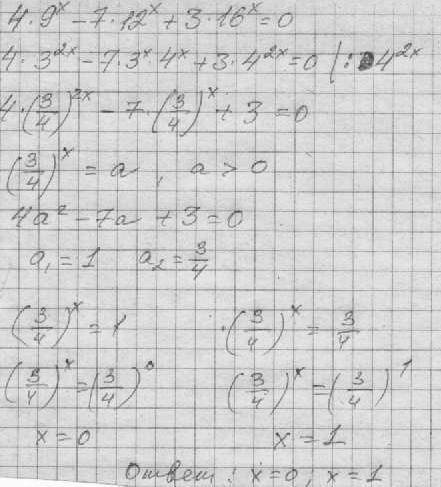 4·9^x − 7·12^x + 3·16^x = 0
4·3^{2x} − 7·3^x·4^x + 3·4^{2x} = 0 | : 4^{2x}
4·(3/4)^{2x} − 7·(3/4)^x + 3 = 0
(3/4)^x = a, a > 0
4a² − 7a + 3 = 0
a₁ = 1 a₂ = 3/4
(3/4)^x = 1 (3/4)^x = 3/4
(3/4)^x = (3/4)^0 (3/4)^x = (3/4)^1
x = 0 x = 1
Ответ: x = 0; x = 1